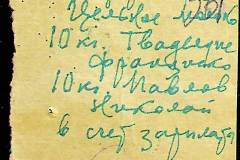 Цельное молоко
10 кг. Твадзедне
Францишко
10 кг. Павлов
Николай
в счет зарплаты